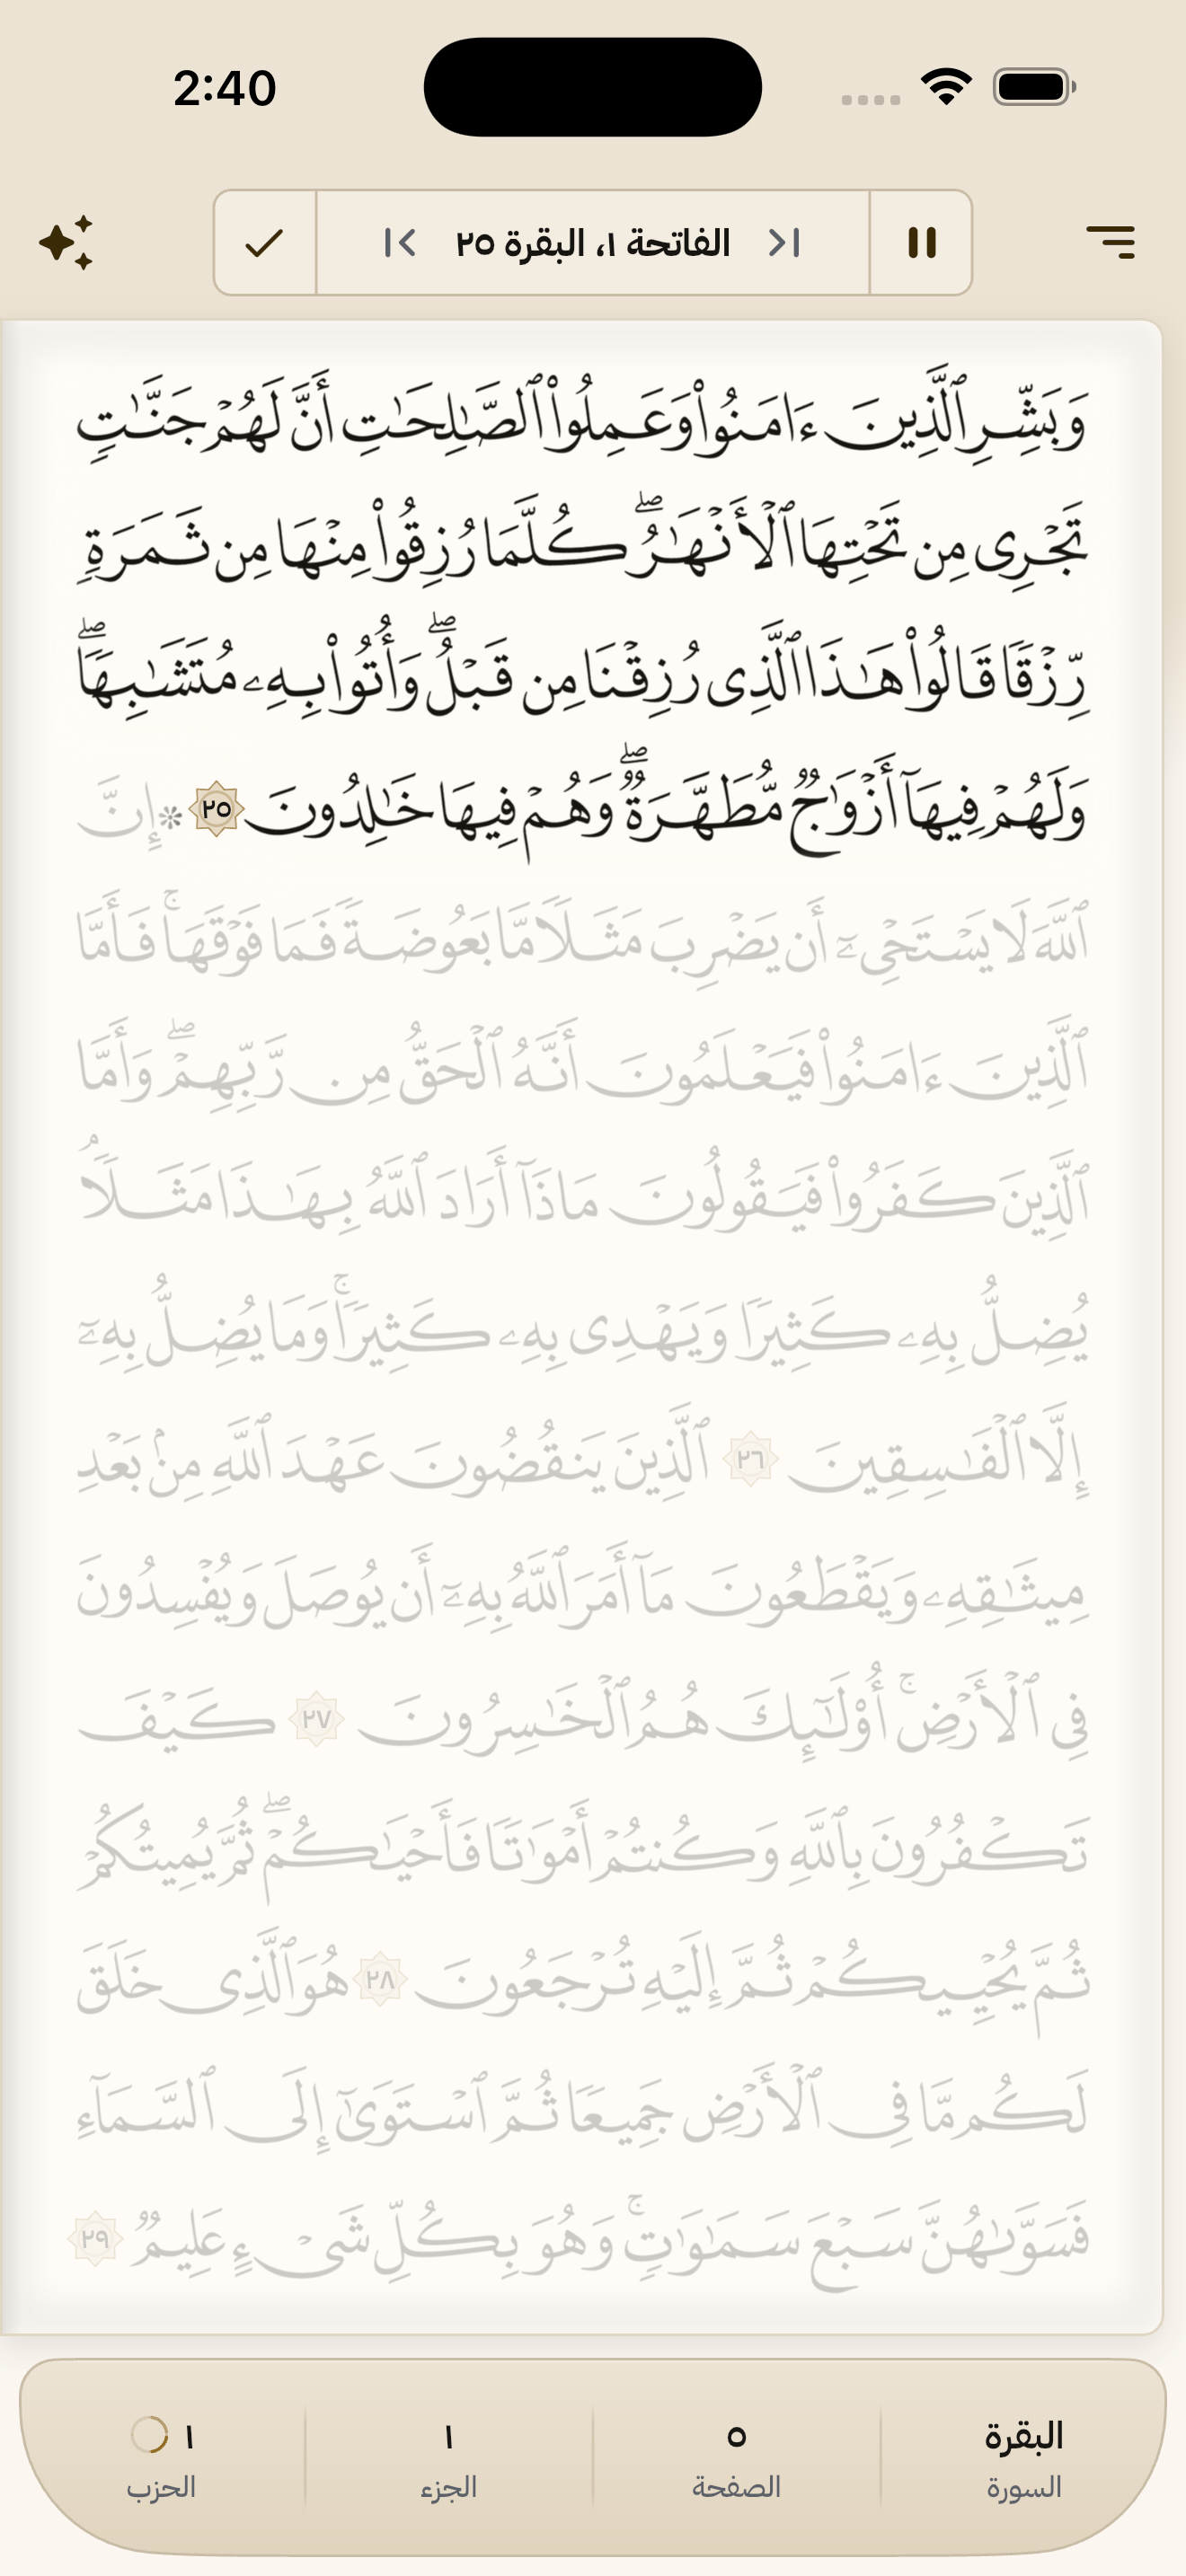 2:40
الفاتحة ١، البقرة ٢٥
وَبَشِّرِ ٱلَّذِينَ ءَامَنُوا۟ وَعَمِلُوا۟ ٱلصَّـٰلِحَـٰتِ أَنَّ لَهُمْ جَنَّـٰتٍ
تَجْرِى مِن تَحْتِهَا ٱلْأَنْهَـٰرُ ۖ كُلَّمَا رُزِقُوا۟ مِنْهَا مِن ثَمَرَةٍ
رِّزْقًا قَالُوا۟ هَـٰذَا ٱلَّذِى رُزِقْنَا مِن قَبْلُ ۖ وَأُتُوا۟ بِهِۦ مُتَشَـٰبِهًا ۖ
وَلَهُمْ فِيهَآ أَزْوَٰجٌ مُّطَهَّرَةٌ ۖ وَهُمْ فِيهَا خَـٰلِدُونَ ٢٥ ۞ إِنَّ
ٱللَّهَ لَا يَسْتَحْىِۦٓ أَن يَضْرِبَ مَثَلًا مَّا بَعُوضَةً فَمَا فَوْقَهَا ۚ فَأَمَّا
ٱلَّذِينَ ءَامَنُوا۟ فَيَعْلَمُونَ أَنَّهُ ٱلْحَقُّ مِن رَّبِّهِمْ ۖ وَأَمَّا
ٱلَّذِينَ كَفَرُوا۟ فَيَقُولُونَ مَاذَآ أَرَادَ ٱللَّهُ بِهَـٰذَا مَثَلًا ۘ
يُضِلُّ بِهِۦ كَثِيرًا وَيَهْدِى بِهِۦ كَثِيرًا ۚ وَمَا يُضِلُّ بِهِۦٓ
إِلَّا ٱلْفَـٰسِقِينَ ٢٦ ٱلَّذِينَ يَنقُضُونَ عَهْدَ ٱللَّهِ مِنۢ بَعْدِ
مِيثَـٰقِهِۦ وَيَقْطَعُونَ مَآ أَمَرَ ٱللَّهُ بِهِۦٓ أَن يُوصَلَ وَيُفْسِدُونَ
فِى ٱلْأَرْضِ ۚ أُو۟لَـٰٓئِكَ هُمُ ٱلْخَـٰسِرُونَ ٢٧ كَيْفَ
تَكْفُرُونَ بِٱللَّهِ وَكُنتُمْ أَمْوَٰتًا فَأَحْيَـٰكُمْ ۖ ثُمَّ يُمِيتُكُمْ
ثُمَّ يُحْيِيكُمْ ثُمَّ إِلَيْهِ تُرْجَعُونَ ٢٨ هُوَ ٱلَّذِى خَلَقَ
لَكُم مَّا فِى ٱلْأَرْضِ جَمِيعًا ثُمَّ ٱسْتَوَىٰٓ إِلَى ٱلسَّمَآءِ
فَسَوَّىٰهُنَّ سَبْعَ سَمَـٰوَٰتٍ ۚ وَهُوَ بِكُلِّ شَىْءٍ عَلِيمٌ ٢٩
البقرة ٥ ١ ١
السورة الصفحة الجزء الحزب